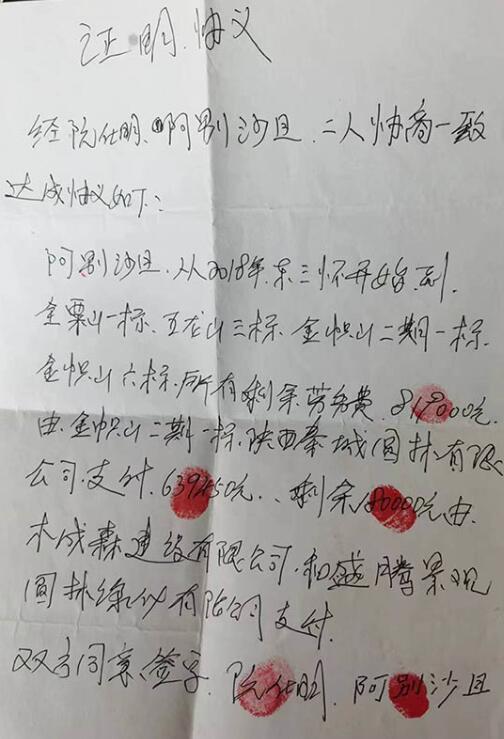 证明.协议
经阮仕明、阿别沙且.二人协商一致
达成协议如下:
阿别沙且.从2018年.东三怀开始.到.
金粟山一标.五龙山三标.金帜山二期一标.
金帜山六标.所有剩余.劳务费.819000元.
由.金帜山二期一标.陕西秦城园林有限
公司.支付.639250元..剩余180000元由.
木成森建设有限公司.和盛腾景观
园林绿化有限公司支付.
双方同意.签字.阮仕明.阿别沙且